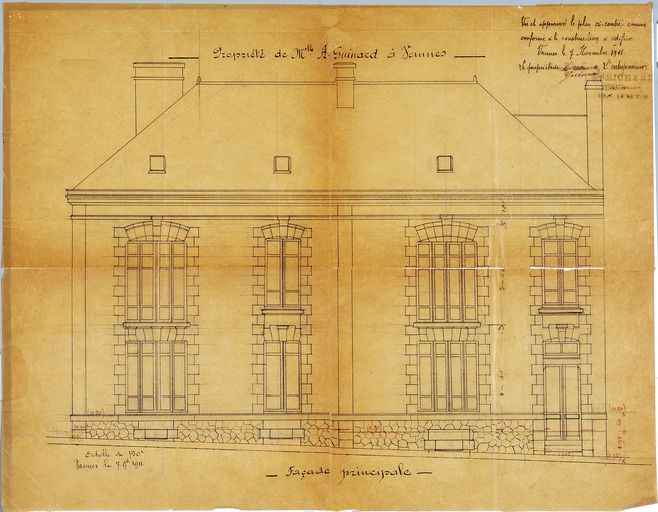 Propriété de Melle A. Guinard à Vannes
Vu et approuvé le plan ci-contre comme
conforme à la construction à édifier
Vannes le 7 Novembre 1911
Le propriétaire L'entrepreneur
Guinard
RICHARD
Echelle de
Vannes le 7 9bre 1911
Façade principale